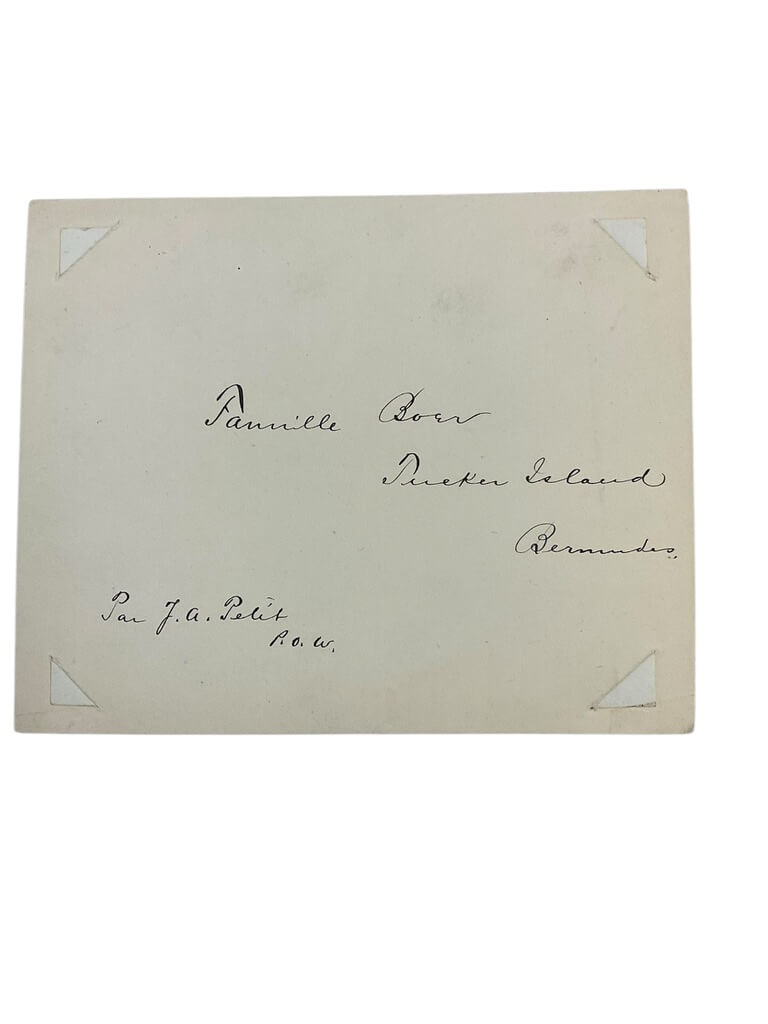 Famille Boer
Tucker Island
Bermudes.
Par J. A. Petit
P. O. W.